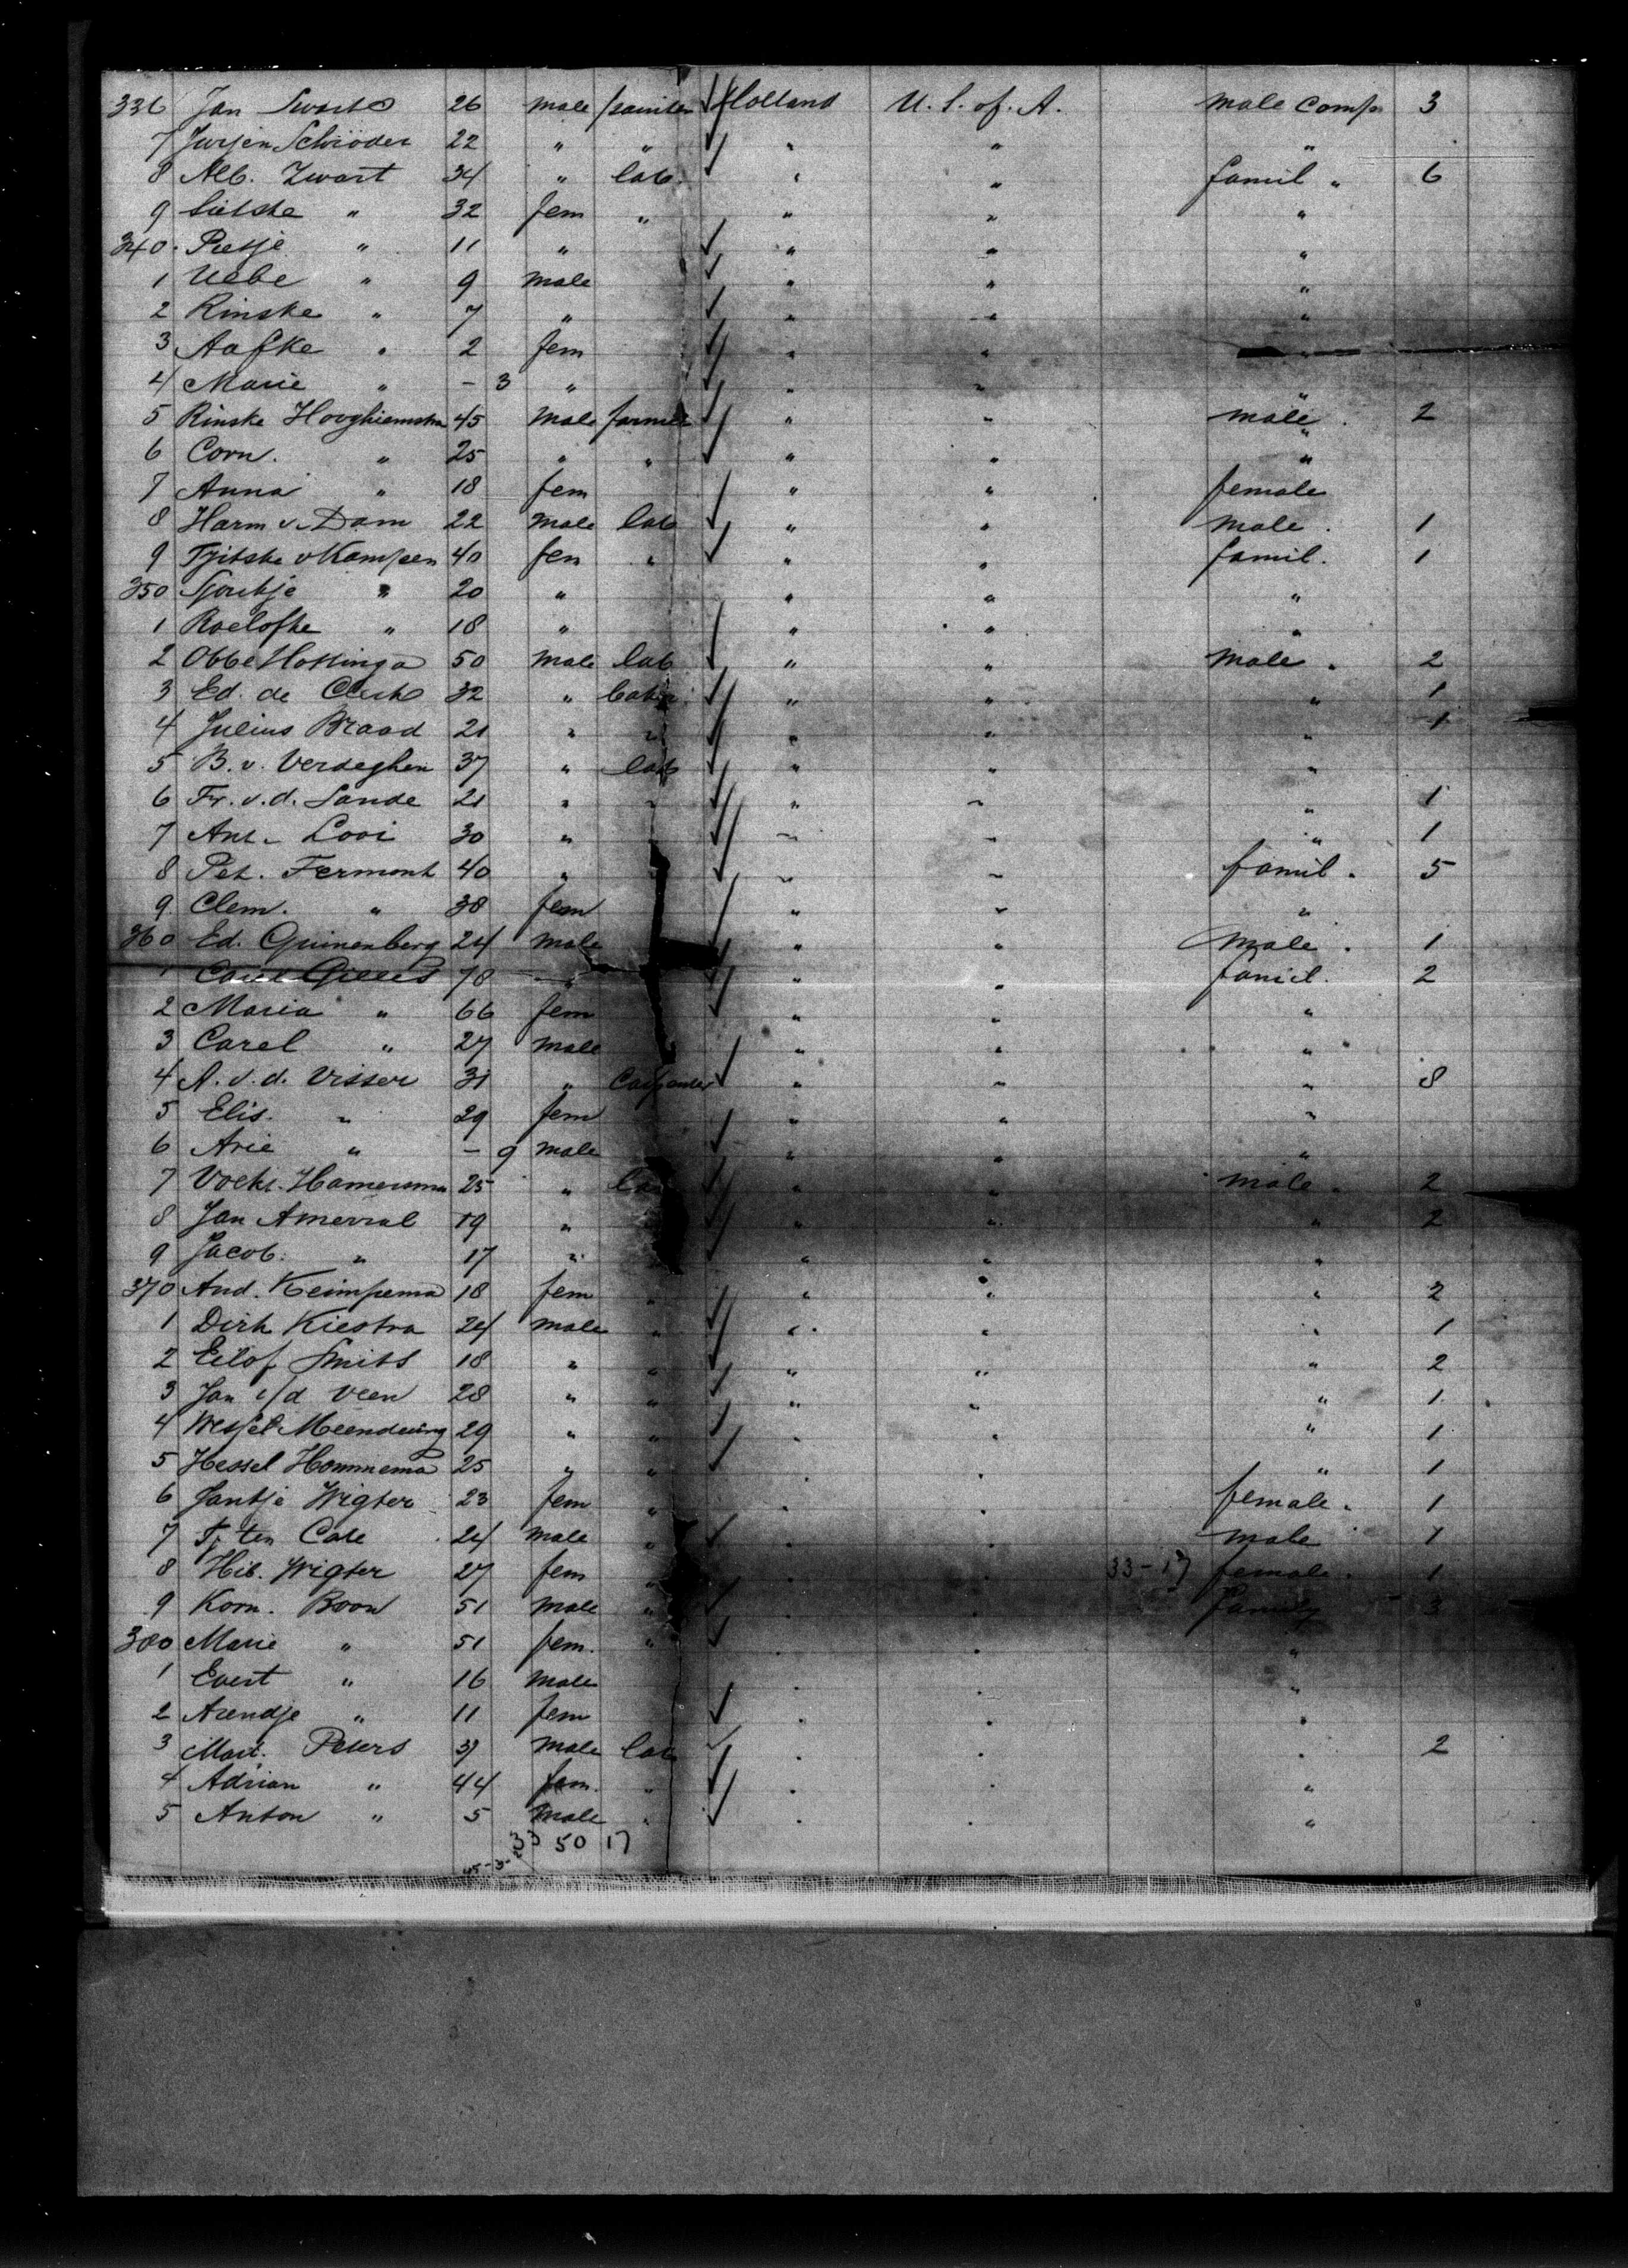 336 Jan Swarts 26 male painter Holland U. S. of. A. male comp. 3
7 Jurjen Schröder 22 " " " " "
8 Alb. Zwart 34 " lab. " " famil " 6
9 Sietske " 32 fem " " " "
340 Pietje " 11 " " " "
1 Uebe " 9 male " " "
2 Rinske " 7 " " " "
3 Aafke " 2 fem " " "
4 Marie " - 3 " " " "
5 Rinske Hooghiemstra 45 male farmer " " male. 2
6 Corn. " 25 " " " " "
7 Anna " 18 fem " " female
8 Harm v. Dam 22 male lab " " male. 1
9 Tjitske v Kampen 40 fem " " " famil. 1
350 Sjoukje " 20 " " " "
1 Roelofke " 18 " " " "
2 Obbe Hottinga 50 male lab " " male. 2
3 Ed. de Clerk 32 " " " " 1
4 Julius Braad 21 " " " " " 1
5 B. v. Verdeghen 37 " lab " " "
6 Fr. v. d. Sande 21 " " " " " 1
7 Ant. Looi 30 " " " " 1
8 Pet. Fermont 40 " " " famil. 5
9 Clem. " 38 fem " " "
360 Ed. Guinenberg 24 male " " male. 1
1 Carel Gilles 78 " " " famil. 2
2 Maria " 66 fem " " "
3 Carel " 27 male " " "
4 A. v. d. Visser 31 " Carpenter " " " 8
5 Elis. " 29 fem " " "
6 Arie " - 9 male " " "
7 Hamersma 25 " la " " male. 2
8 Jan Amerral 19 " " " " 2
9 Jacob. " 17 " " " "
370 And. Keimpema 18 fem " " " " 2
1 Dirk Kiestra 24 male " " " " 1
2 Eilof Smits 18 " " " " " 2
3 Jan v/d Veen 28 " " " " " 1
4 Wessel Meendering 29 " " " " " 1
5 Hessel Hommema 25 " " " " " 1
6 Jantje Wigter 23 fem " " " female. 1
7 Tj. ten Cate 24 male " " " male 1
8 Hib. Wigter 27 fem " " " 33-17 female. 1
9 Korn. Boon 51 male " " " family 3
380 Marie " 51 fem. " " " "
1 Evert " 16 male " " "
2 Arendje " 11 fem " " "
3 Mart. Peters 37 male lab " " " 2
4 Adrian " 44 fem. " " " "
5 Anton " 5 male " " " "
33 50 17
45-3-2